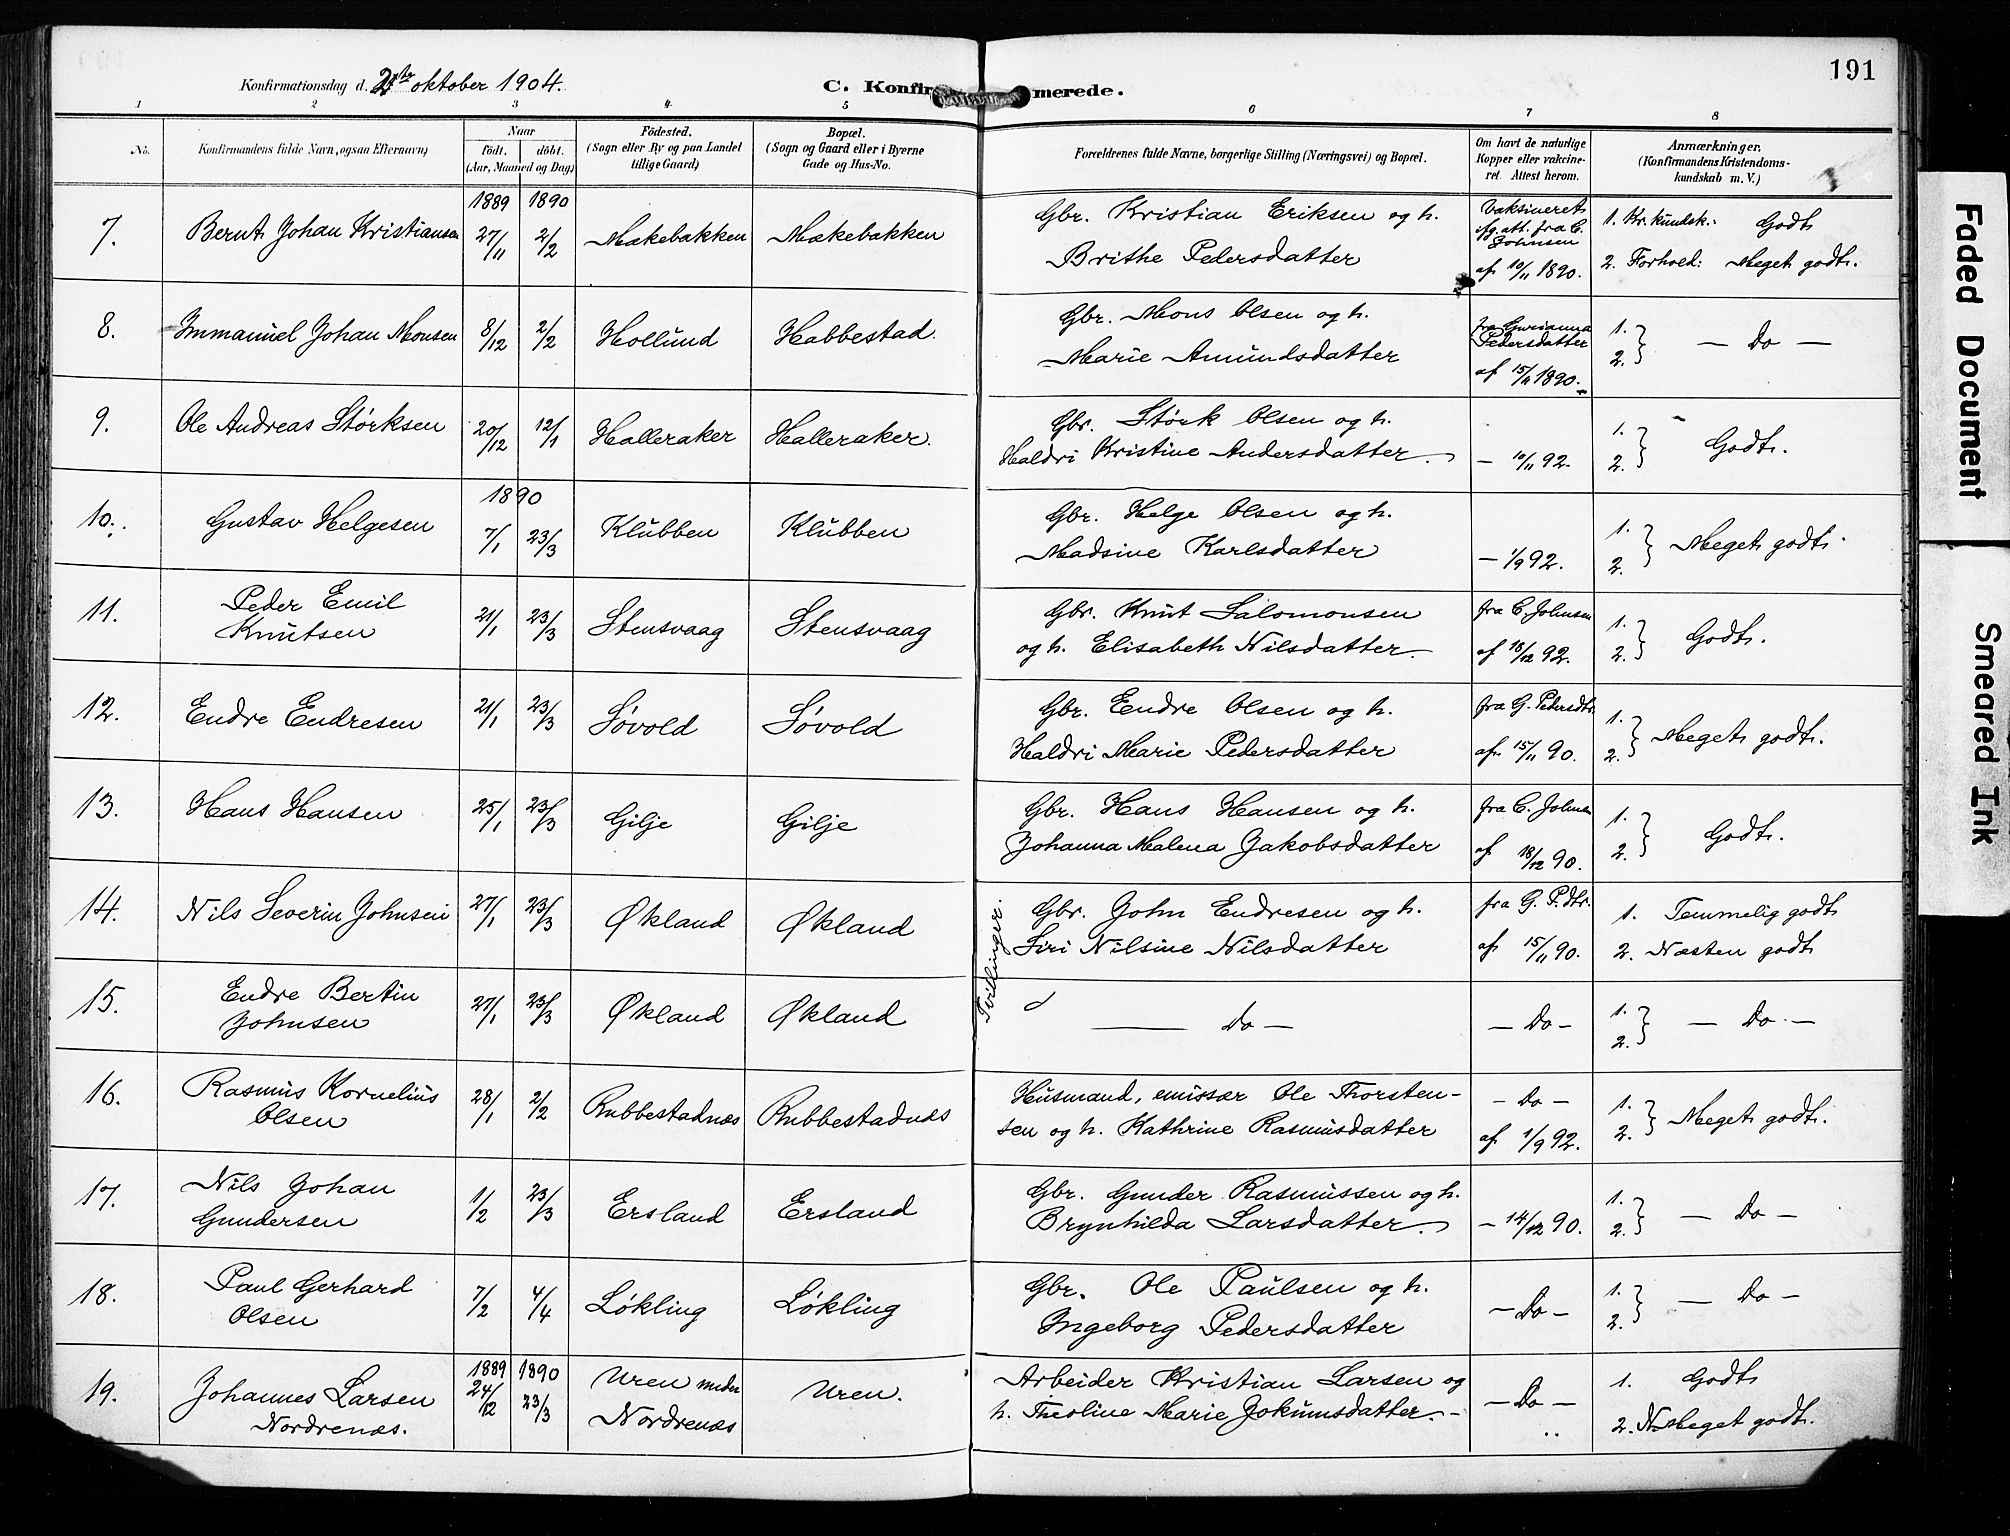 191
Konfirmationsdag d. 2den oktober 1904.
C. Konfir merede.
1 2 3 4 5 6 7 8
No.
Konfirmandens fulde Navn, ogsaa Efternavn)
Naar
födt. döbt.
(Aar, Maaned og Dag)
Födested.
(Sogn eller By og paa Landet
tillige Gaard)
Bopæl.
(Sogn og Gaard eller i Byerne
Gade og Hus-No.
Forældrenes fulde Navne, borgerlige Stilling (Næringsvei) og Bopæl.
Om havt de naturlige
Kopper eller vakcine-
ret. Attest herom.
Anmærkninger.
(Konfirmandens Kristendoms-
kundskab m. V.)
7.
Bernt Johan Kristiansen
1889 1890
27/11 2/2
Mækebakken
Mækebakken
Gbr. Kristian Eriksen og h.
Brithe Pedersdatter
Vaksineret
flg. att. fra C.
Johnsen
af 10/11 1890.
1. Kr. kundsk.: Godt
2. Forhold: Meget godt.
8.
Immanuel Johan Monsen
8/12 2/2
Hollund
Habbestad.
Gbr. Mons Olsen og h.
Marie Amundsdatter
fra Gurianna
Pedersdatter
af 15/11 1890.
1.
2. } — Do —
9.
Ole Andreas Størksen
20/12 12/1
Halleraker
Halleraker.
Gbr. Størk Olsen og h.
Haldri Kristine Andersdatter.
— 10/11 92.
1.
2. } Godt.
10.
Gustav Helgesen
1890
7/1 23/3
Klubben
Klubben
Gbr. Helge Olsen og h.
Madsine Karlsdatter
— 1/9 92.
1.
2. } Meget godt.
11.
Peder Emil
Knutsen
21/1 23/3
Stensvaag
Stensvaag
Gbr. Knut Salomonsen
og h. Elisabeth Nilsdatter.
fra C. Johnsen
af 18/12 92.
1.
2. } Godt.
12.
Endre Endresen
21/1 23/3
Søvold
Søvold
Gbr. Endre Olsen og h.
Haldri Marie Pedersdatter
fra G. Pedersdtr.
af 15/11 90.
1.
2. } Meget godt.
13.
Hans Hansen
25/1 23/3
Gilje
Gilje
Gbr. Hans Hansen og h.
Johanna Malena Jakobsdatter
fra C. Johnsen
af 18/12 90.
1.
2. } Godt.
14.
Nils Severin Johnsen
27/1 23/3
Økland
Økland
Tvillinger.
Gbr. John Endresen og h.
Siri Nilsine Nilsdatter
fra G. P.dtr.
af 15/11 90.
1. Temmelig godt
2. Næsten godt
15.
Endre Bertin
Johnsen
27/1 23/3
Økland
Økland
— Do —
— Do —
1.
2. } — Do —
16.
Rasmus Kornelius
Olsen
28/1 2/2
Rubbestadnæs
Rubbestadnæs
Husmand, emissær Ole Thorsten-
sen og h. Kathrine Rasmusdatter
— Do —
af 1/9 92.
1.
2. } Meget godt.
17.
Nils Johan
Gundersen
1/2 23/3
Ersland
Ersland
Gbr. Gunder Rasmussen og h.
Brynhilda Larsdatter.
— 14/12 90.
1.
2. } — Do —
18.
Paul Gerhard
Olsen
7/2 4/4
Løkling
Løkling
Gbr. Ole Paulsen og h.
Ingeborg Pedersdatter
— Do —
1.
2. } — Do —
19.
Johannes Larsen
Nordrenæs.
1889 1890
24/12 23/3
Uren under
Nordrenæs
Uren.
Arbeider Kristian Larsen og
h. Theoline Marie Jokumsdatter.
— Do —
1. Godt
2. N. Meget godt.
Faded Document
Smeared Ink